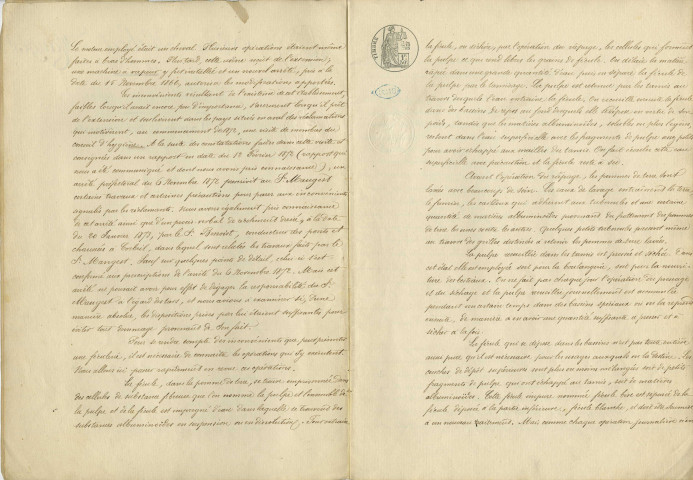 Le moteur employé était un cheval. Plusieurs opérations étaient même
faites à bras d'hommes. Plus tard, cette usine reçut de l'extension,
une machine à vapeur y fut installée et un nouvel arrêté, pris à la
date du 15 Novembre 1866, autorisa les modifications apportées.
Les inconvénients résultant de l'existence de cet établissement,
faibles lorsqu'il avait encore peu d'importance, s'accrurent lorsqu'il prit
de l'extension et suscitèrent dans les pays situés en aval des réclamations
qui motivèrent, au commencement de 1872, une visite de membres du
conseil d'hygiène. A la suite des constatations faites dans cette visite et
consignées dans un rapport en date du 12 Février 1872 (rapport qui
nous a été communiqué et dont nous avons pris connaissance), un
arrêté préfectoral du 4 Décembre 1872 prescrivit au Sr. Mauget
certains travaux et certaines précautions pour parer aux inconvénients
signalés par les réclamants. Nous avons également pris connaissance
de cet arrêté ainsi que d'un procès verbal de récolement dressé, à la date
du 20 Janvier 1873, par le Sr. Benoist, conducteur des ponts et
chaussées à Corbeil, dans lequel sont relatés les travaux faits par le
Sr. Mauget. Sauf sur quelques points de détail, celui-ci s'est
conformé aux prescriptions de l'arrêté du 4 Décembre 1872. Mais cet
arrêté ne pouvait avoir pour effet de dégager la responsabilité du Sr.
Mauget à l'égard des tiers, et nous avions à examiner si, d'une
manière absolue, les dispositions prises par lui étaient suffisantes pour
éviter tout dommage provenant de son fait.
Pour se rendre compte des inconvénients que peut présenter
une féculerie, il est nécessaire de connaître les opérations qui s'y exécutent.
Nous allons ici passer rapidement en revue ces opérations.
La fécule, dans la pomme de terre, se trouve emprisonnée dans
des cellules de substance fibreuse que l'on nomme la pulpe, et l'ensemble de
la pulpe et de la fécule est imprégné d'eau dans laquelle se trouvent des
substances albuminoïdes en suspension ou en dissolution. Pour extraire
la fécule, on déchire, par l'opération du râpage, les cellules qui forment
la pulpe, ce qui rend libres les grains de fécule. On délaie la matière
râpée dans une grande quantité d'eau, puis on sépare la fécule de
la pulpe par le tamisage. La pulpe est retenue par les tamis au
travers desquels l'eau entraîne la fécule. On recueille ensuite la fécule
dans des bassins de repos au fond desquels elle se dépose en vertu de son
poids, tandis que les matières albuminoïdes, solubles ou plus légères
restent dans l'eau superficielle avec les fragments de pulpe assez petits
pour avoir échappé aux mailles des tamis. On fait écouler cette eau
superficielle avec précaution et la fécule reste à sec.
Avant l'opération du râpage, les pommes de terre sont
lavées avec beaucoup de soin. Les eaux de lavage entraînent la terre,
le fumier, les cailloux qui adhèrent aux tubercules et une certaine
quantité de matières albuminoïdes provenant du frottement des pommes
de terre les unes contre les autres. Quelques petits tubercules passent même
au travers des grilles destinées à retenir les pommes de terre lavées.
La pulpe recueillie dans les tamis est pressée et séchée. Dans
cet état elle est employée soit pour la boulangerie, soit pour la nourri-
ture des bestiaux. On ne fait pas chaque jour l'opération du pressage
et du séchage et la pulpe recueillie journellement est accumulée
pendant un certain temps dans des bassins spéciaux où on la répartit
ensuite de manière à en avoir une quantité suffisante à presser et à
sécher à la fois.
La fécule qui se dépose dans les bassins n'est pas toute entière
aussi pure qu'il est nécessaire pour les usages auxquels on la destine. Les
couches de dépôt supérieures sont plus ou moins mélangées soit de petits
fragments de pulpe qui ont échappé au tamis, soit de matières
albuminoïdes. Cette fécule impure nommée fécule bise est séparée de la
fécule déposée à la partie inférieure, fécule blanche, et doit être soumise
à un nouveau épuration. Mais comme chaque opération journalière n'en